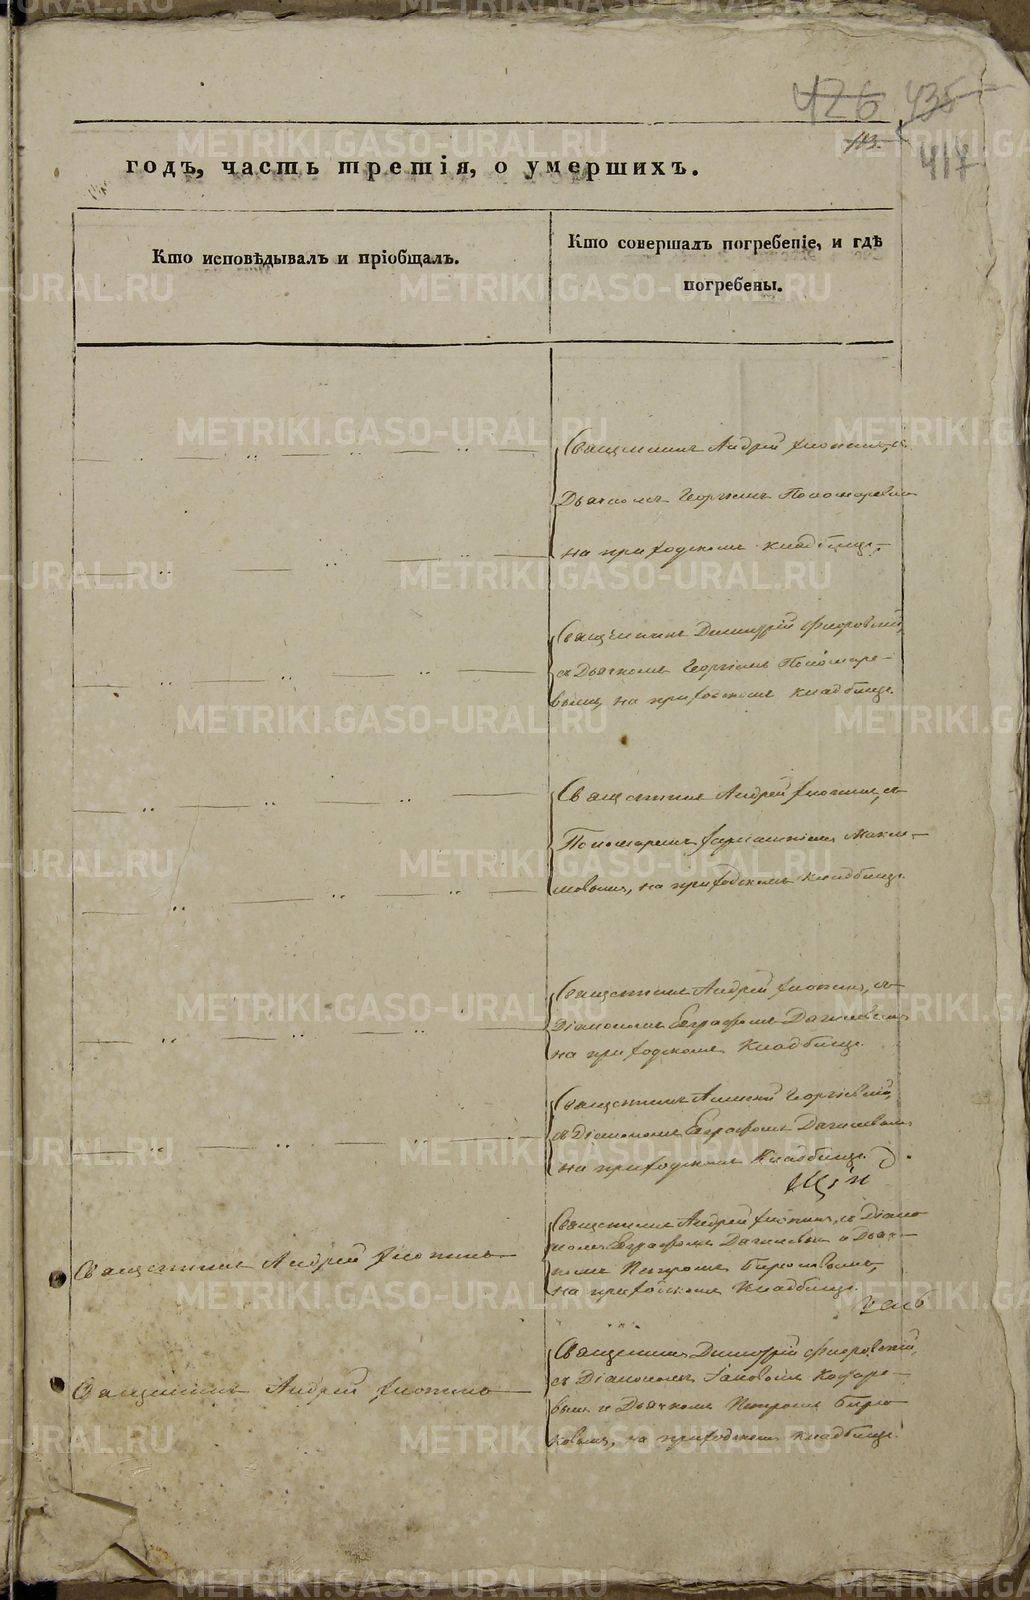 426 435
113.
417
годъ, часть третія, о умершихъ.
Кто исповѣдывалъ и пріобщалъ.
Кто совершалъ погребеніе, и гдѣ
погребены.
Священникъ Андрей
Дьячкомъ Георгіемъ Пономаревымъ
на приходскомъ кладбищѣ
Священникъ Димитрій Флоровскій,
съ Дьячкомъ Георгіемъ Пономаре-
вымъ, на приходскомъ кладбищѣ.
Священникъ Андрей съ
Пономаремъ Макси-
мовымъ, на приходскомъ кладбищѣ.
Священникъ Андрей съ
Діакономъ Евграфомъ
на приходскомъ кладбищѣ.
Священникъ Алексій Георгіевскій,
съ Діакономъ Евграфомъ
на приходскомъ кладбищѣ.
Священникъ Андрей
Священникъ Андрей съ Діако-
номъ Евграфомъ и Дьяч-
комъ Петромъ Бирюковымъ,
на приходскомъ кладбищѣ.
Священникъ Андрей
Священникъ Димитрій Флоровскій,
съ Діакономъ Іаковомъ
вымъ и Дьячкомъ Петромъ Бирю-
ковымъ, на приходскомъ кладбищѣ.
METRIKI.GASO-URAL.RU